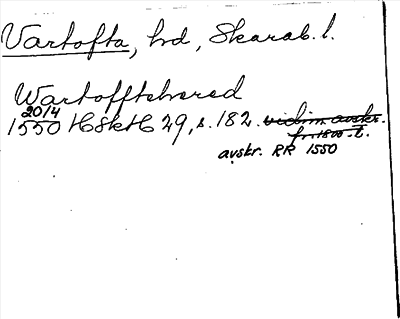 Vartofta, hd, Skarab. l.
Wartofftehæred
20/4
1550 HSkH 29, s. 182. vidim. avskr.
fr. 1800-t.
avskr. RR 1550